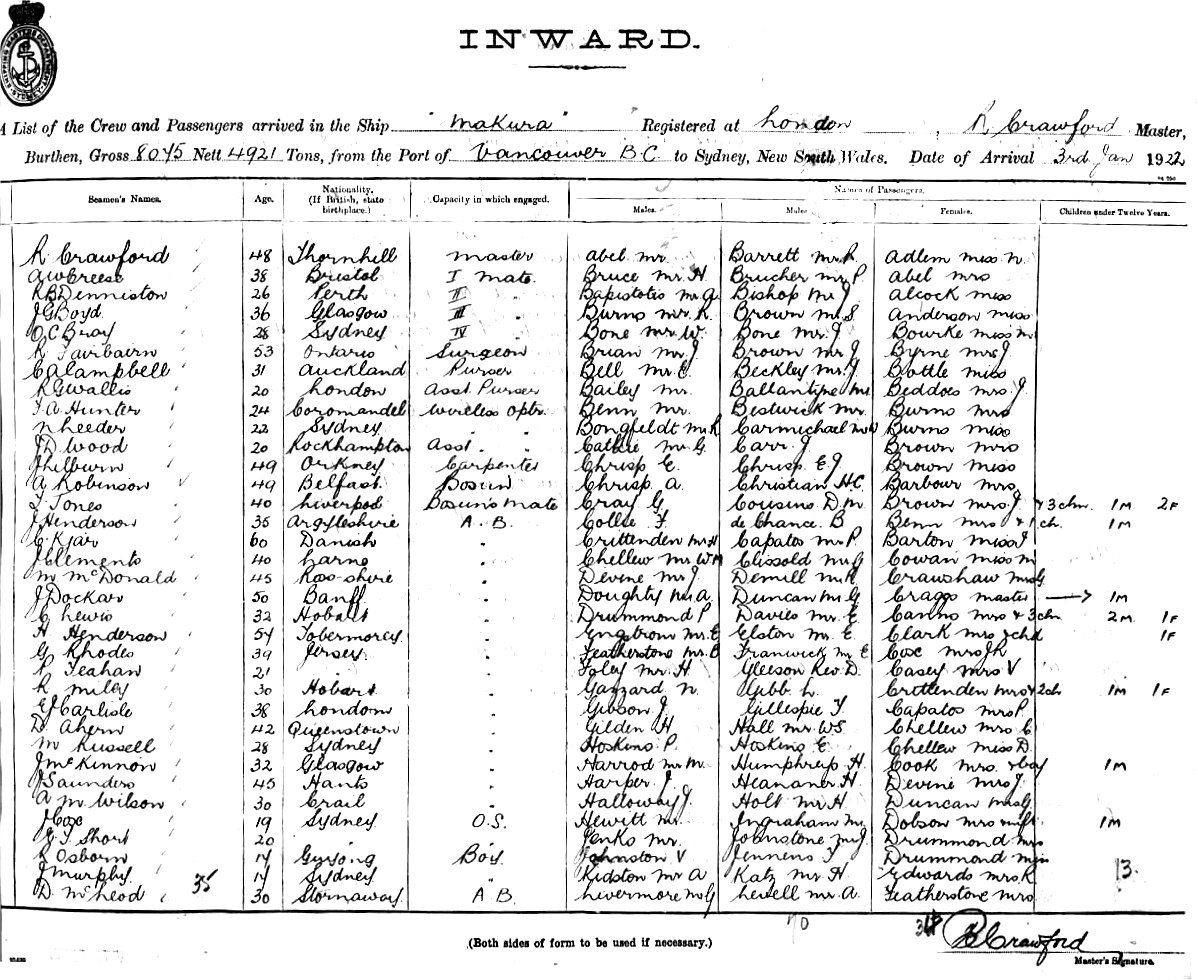 INWARD.
A List of the Crew and Passengers arrived in the Ship "Makura" Registered at London, R Crawford Master,
Burthen, Gross 8075 Nett 4921 Tons, from the Port of Vancouver B.C to Sydney, New South Wales. Date of Arrival 3rd Jan 1922
Seamen's Names. Age. Nationality. (If British, state birthplace.) Capacity in which engaged. Names of Passengers.
Males. Males. Females. Children under Twelve Years.
R Crawford 48 Thornhill Master Abel Mr Barrett Mr R Adlem Miss N
A W Creese 38 Bristol I Mate Bruce Mr H Brucher Mr P Abel Mrs
R B Denniston 26 Perth II " Bapistotis Mr A Bishop Mr J Alcock Miss
J G Boyd 36 Glasgow III " Burns Mr R Brown Mr S Anderson Miss
O C Bray 28 Sydney IV " Bone Mr W. Bone Mr J Bourke Miss M
R Fairbairn 53 Ontario Surgeon Brian Mr J Brown Mr J Byrne Mrs J
C A Campbell 31 Auckland Purser Bell Mr C Beckley Mr J Bottle Miss
R G Wallis 20 London Asst Purser Bailey Mr Ballantyne Mr Beddoes Mrs J
T A Hunter 24 Coromandel Wireless Optr. Benn Mr. Bestwick Mr. Burns Mrs
N Leeder 22 Sydney " " Bongfeldt Mr R Carmichael Mr W Burns Miss
J D Wood 20 Rockhampton Asst. " Cathie Mr G Carr J Brown Mrs
J Lelburn 49 Orkney Carpenter Chrisp E. Chrisp E J Brown Miss
A Robinson 49 Belfast Bosun Chrisp A. Christian H C. Barbour Mrs
T Jones 40 Liverpool Bosun's Mate Cray G Cousins D M Brown Mrs J & 3 chn. 1M 2F
J Henderson 35 Argyleshire A.B. Collie F de Chance B Benn Mrs & 1 ch. 1M
C Kjar 60 Danish " Crittenden Mr H Capatos Mr P. Barton Miss I
J Clements 40 Larne " Chellew Mr W M Clissold Mr G Cowan Miss M
M McDonald 45 Ross-shire " Devine Mr J. Demill Mr R Crawshaw Mrs G
J Dockar 50 Banff " Doughty Mr A. Duncan Mr G Craggs Master → 1M
C Lewis 32 Hobart " Drummond P Davies Mr E. Canns Mrs & 3 chn 2M 1F
H Henderson 54 Tobermorey " Engstrom Mr E Elston Mr E Clark Mrs & chd 1F
G Rhodes 39 Jersey " Featherstone Mr B Franwick Mr E Cox Mrs J R
P Feahan 21 " Foley Mr H Gleeson Rev D. Casey Mrs V
R Miley 30 Hobart " Gazzard N. Gibb L. Crittenden Mrs & 2 ch 1M 1F
E J Carlisle 38 London " Gibson J Gillespie T Capatos Mrs P.
D. Ahern 42 Queenstown " Gilden H Hall Mr W S Chellew Mrs C
M Russell 28 Sydney " Hoskins P. Hoskins E. Chellew Miss D.
J McKinnon 32 Glasgow " Harrod Mr M. Humphreys H. Cook Mrs & boy 1M
J Saunders 45 Hants " Harper J Heananer H Devine Mrs J
A M Wilson 30 Crail " Halloway J Holt Mr H. Duncan Mrs G
J Cox 19 Sydney O.S. Hewitt Mr Ingraham Mr Dobson Mrs 1M
E J Short 20 " " Jenks Mr. Johnstone Mr J Drummond Mrs
L Osborn 17 Boy Johnston V Jennens T Drummond Miss
J Murphy 17 Sydney " Kidston Mr A Katz Mr H Edwards Mrs R 13.
D. McLeod 35 30 Stornaway A B. Livermore Mr G Lewell Mr A. Featherstone Mrs
70 R Crawford
(Both sides of form to be used if necessary.) Master's Signature.